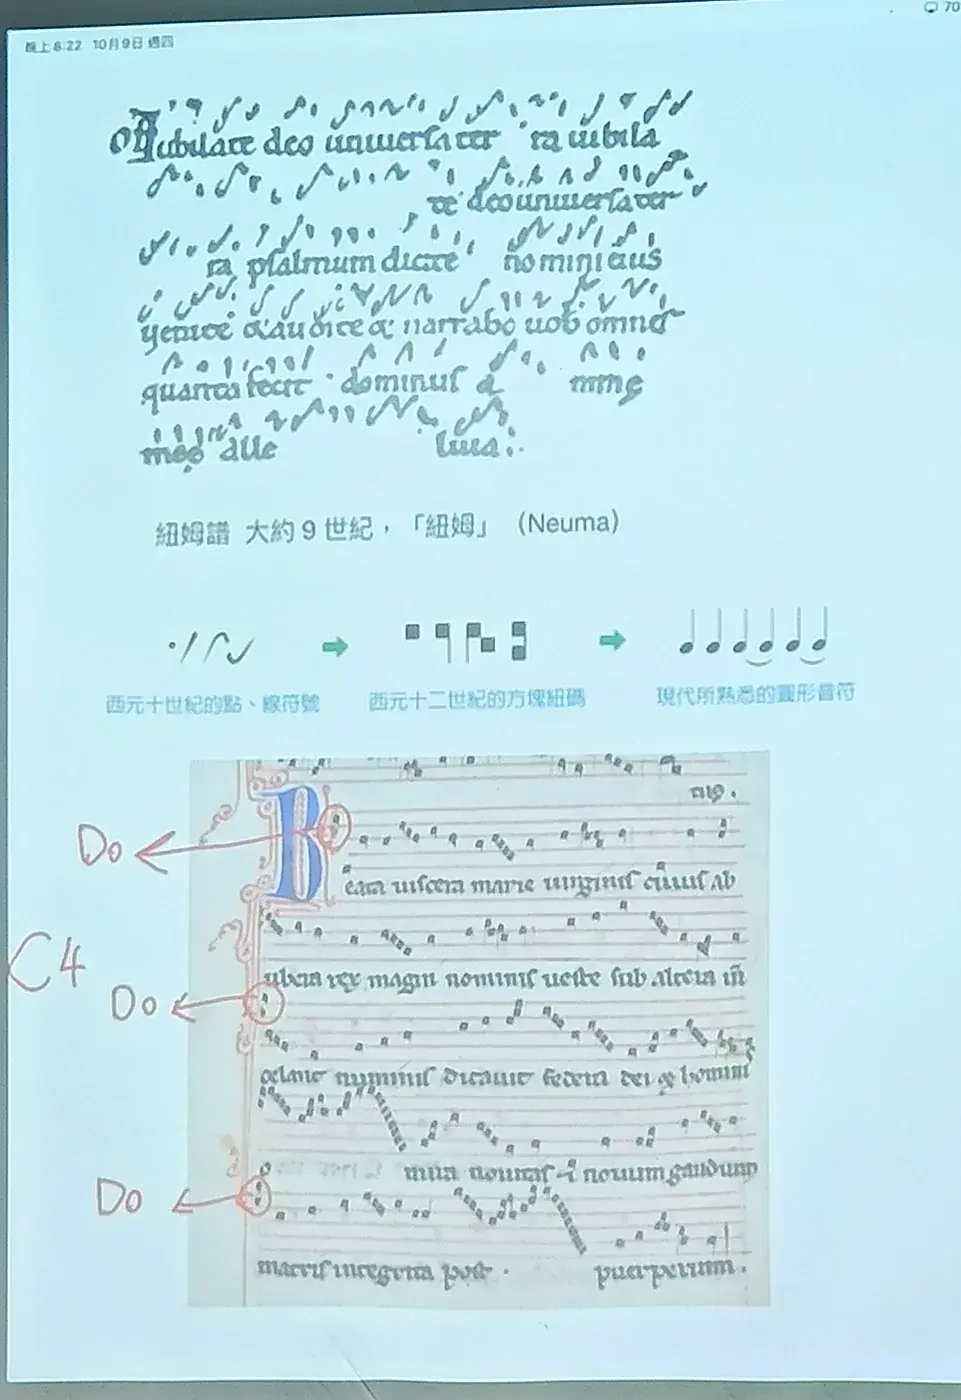 晚上8:22 10月9日 週四
70
Jubilate deo uniuersa ter ra iubila
te deo uniuersa ter
ra psalmum dicite nomini eius
uenite & audite & narrabo uob omnes
quanta fecit dominus a nimę
meę alle luia
紐姆譜 大約9世紀，「紐姆」 (Neuma)
西元十世紀的點、線符號 西元十二世紀的方塊紐碼 現代所熟悉的圓形音符
Do
eata uiscera marie uirginis cuius ab
C4
ubera rex magni nominis ueste sub altera
Do
celans numinis dictauit federa dei & hominis
mira nouitas & nouum gaudium
Do
matris integrita post puerperium.